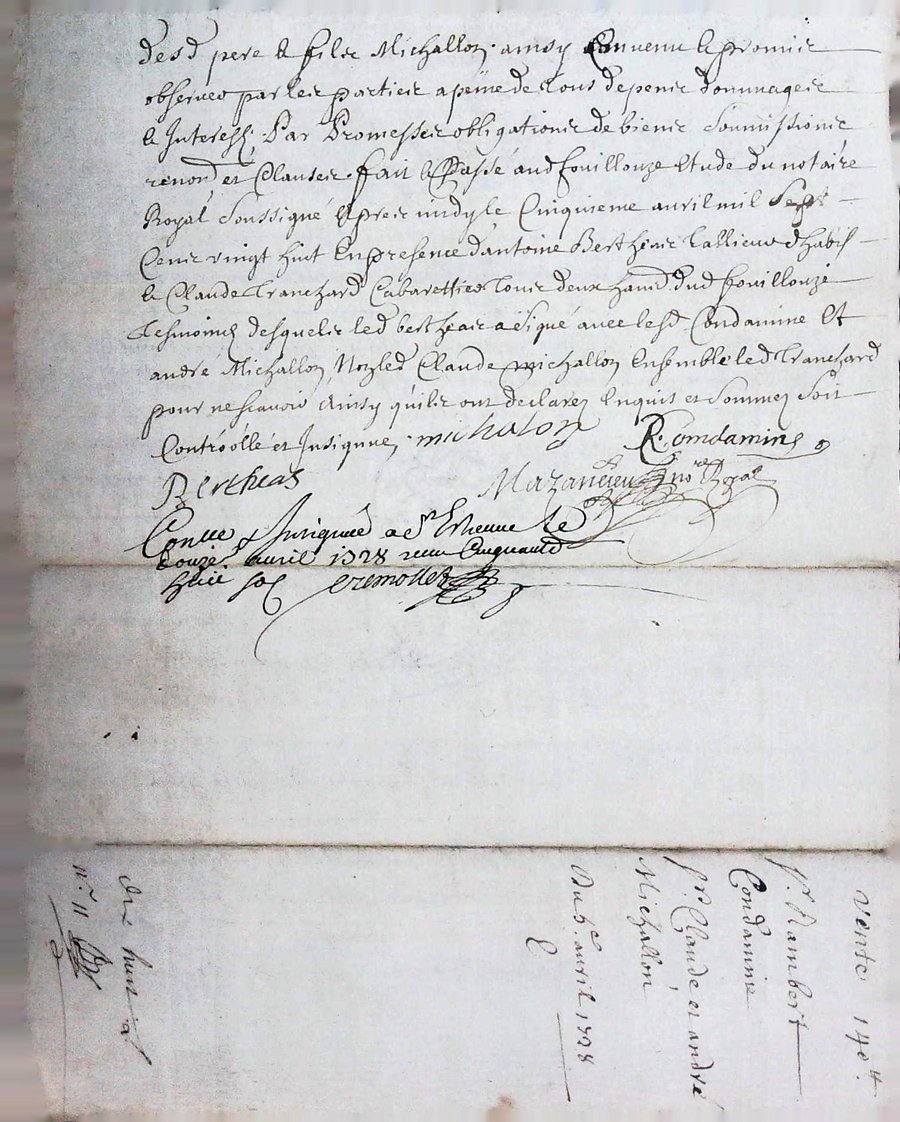 desd pere & filz Michallon ainsy Convenu & promis
observer par les parties a peine de tous depens dommages
& Interests, Par Promesses obligations de biens Soumissions
renond. et Clauses. fait & Passé aud fouillouze Etude du notaire
Royal Soussigné apres midy le Cinquieme avril mil Sept
Cens vingt huit En presence d'antoine Bertheas
& Claude Tranchard Cabarettier tous deux habit dud fouillouze
tesmoins desquels led bertheas a signé avec led Condamine Et
andré Michallon Non led Claude michallon Ensemble led Tranchard
pour ne scavoir Ainsy quils ont declarez Enquis et Sommez Soit
Controollé et Insignué. michalon R. Comdamine
Bertheas Mazancieu nore Royal
Conllé & Insignué a St Etienne le
douze avril 1728 receu Cinquante
huit sols
Vente 140tt
pr. Rambert
Condamine
pr. Claude, et andré
Michallon
Du 5e avril 1728
dix huit
n° 11